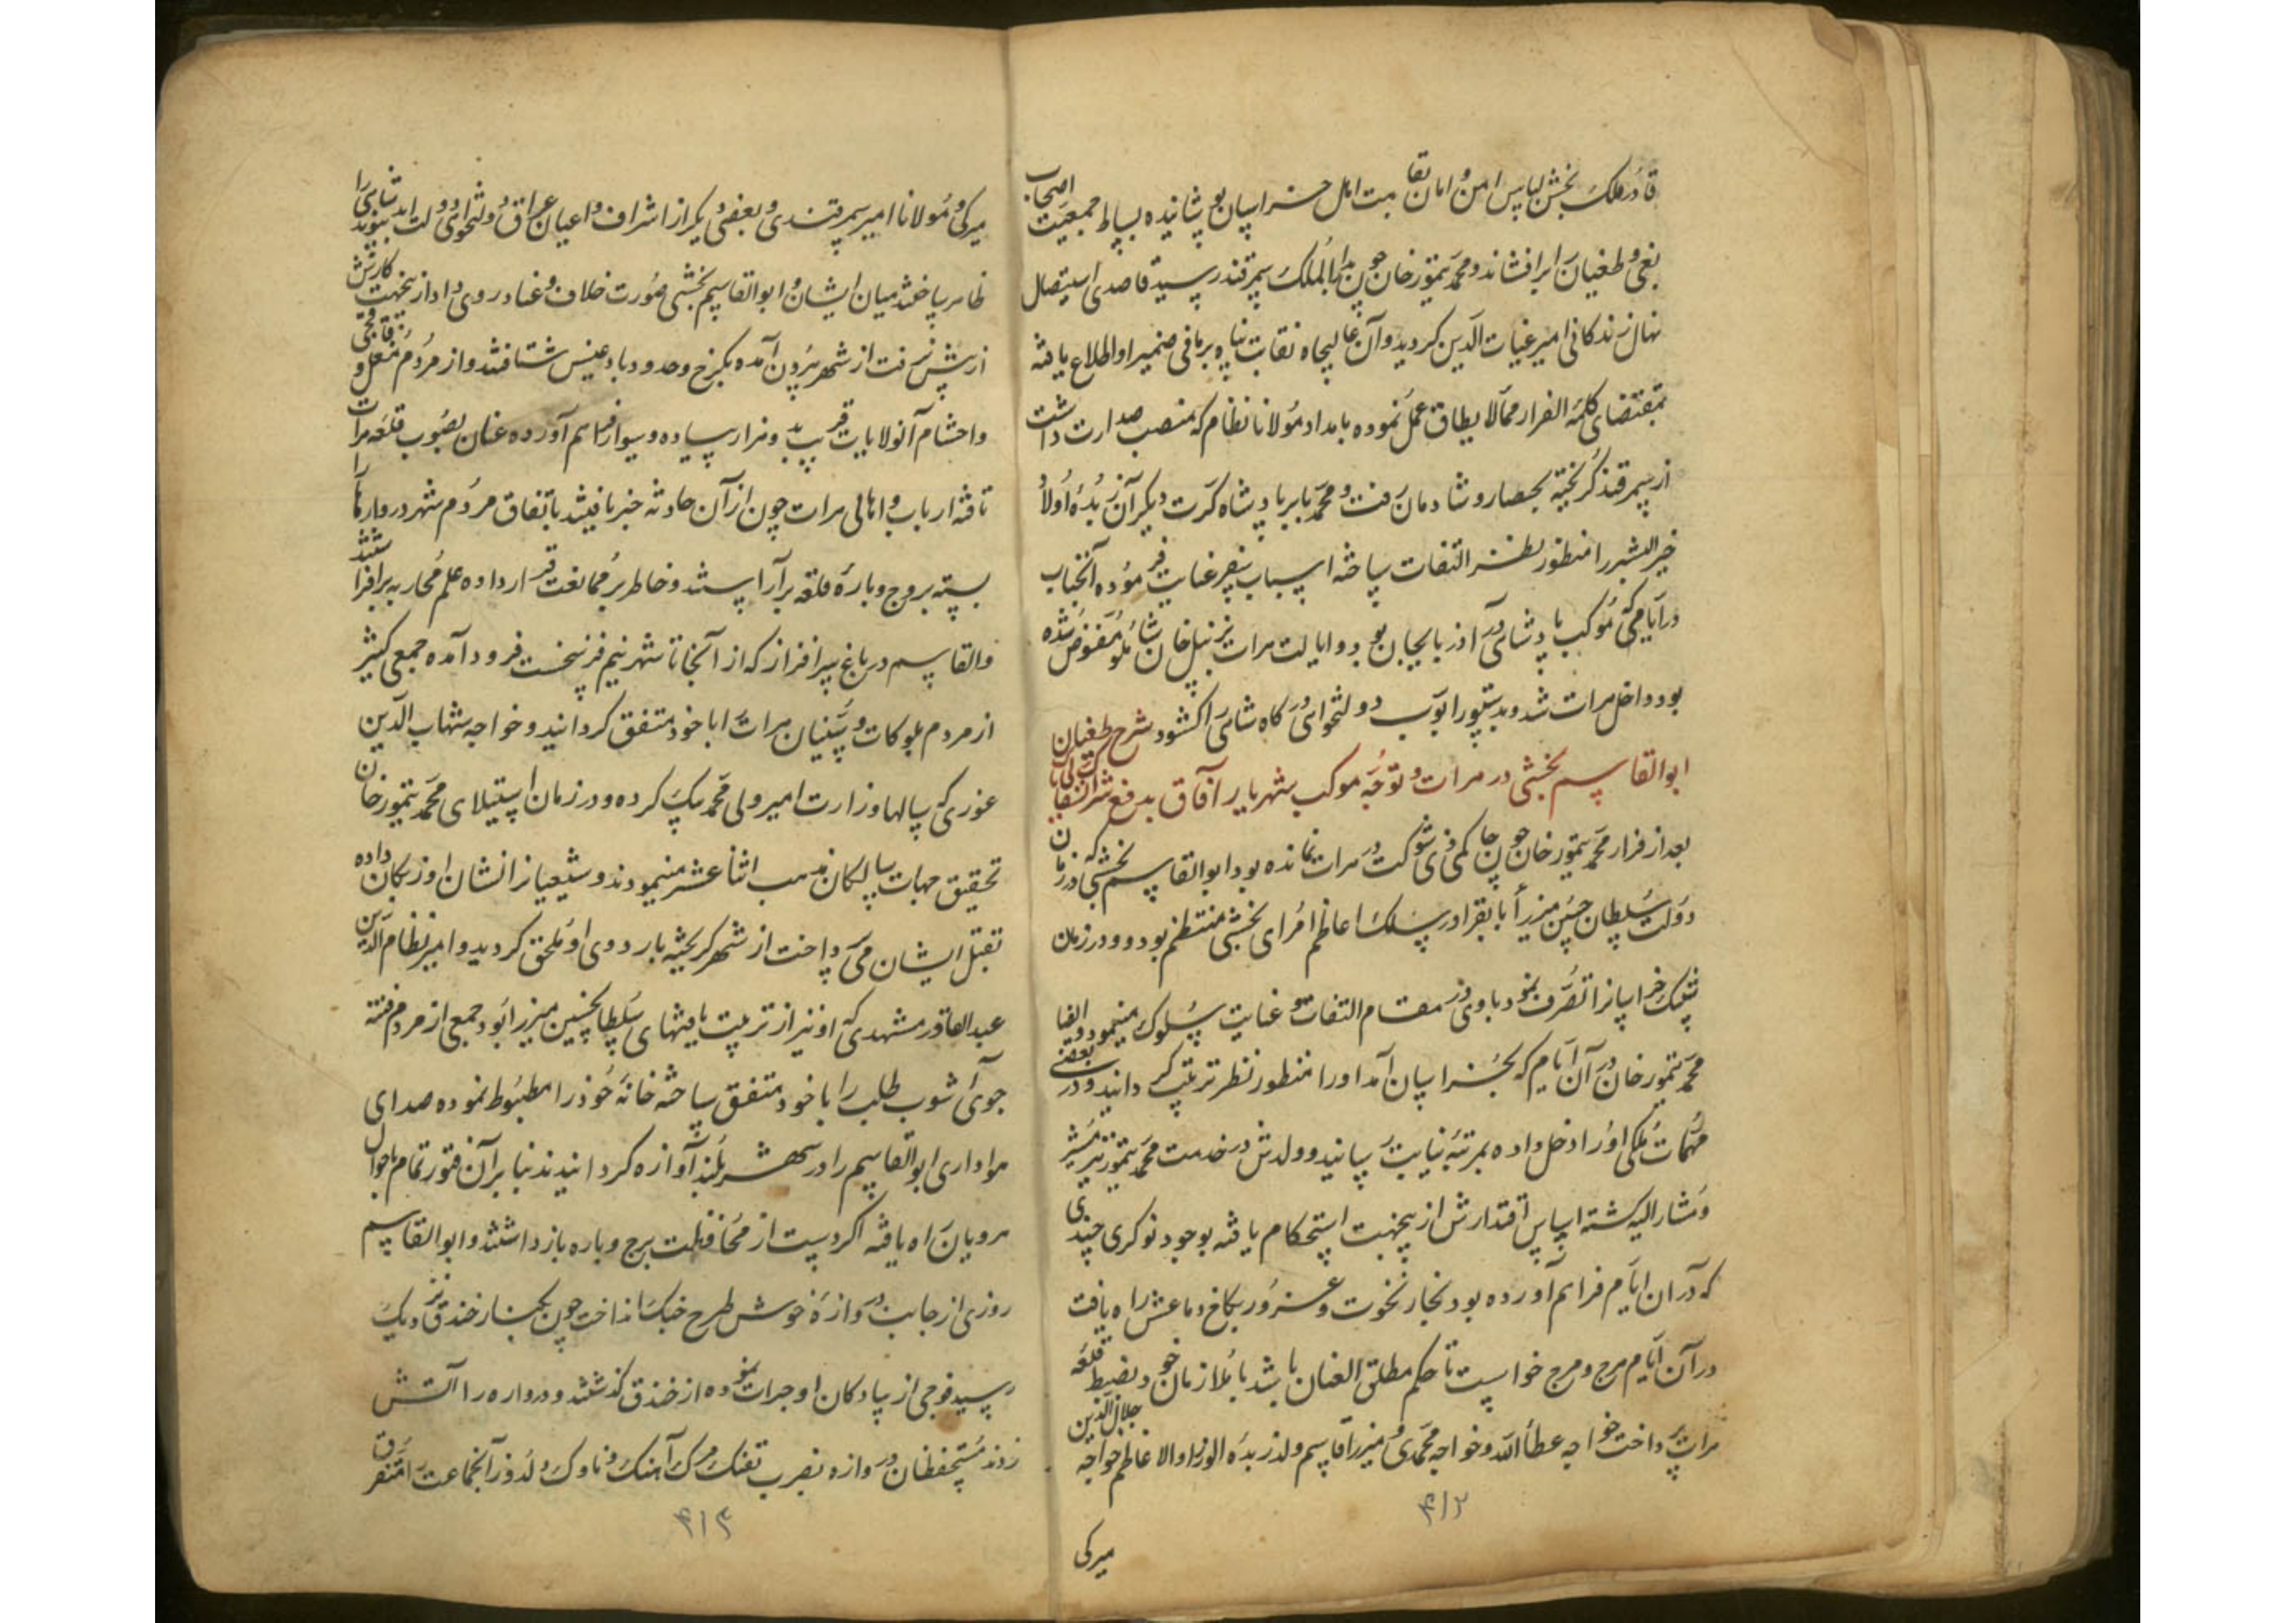 قادر ملک بخش لباس امن و امان بقامت اهل خراسان پوشانیده بساط جمعیت اصحاب
بغی و طغیان را برافشاند و محمد تیمور خان چون بدار الملک سمرقند رسید قاصد استیصال
نهال زندکانی امیر غیاث الدین کردید و آن عالیجاه نقابت پناه بر مافی ضمیر او اطلاع یافته
بمقتضای کلمه الفرار ممالا یطاق عمل نموده بامداد مولانا نظام که منصب صدارت داشت
از سمرقند کریخته بحصار و شادمان رفت و محمد بابر پادشاه کرت دیکر آن زبده اولاد
خیر البشر را منظور نظر التفات ساخته اسباب سفر عنایت فرموده آنجناب
در ایامی که موکب پادشاهی در آذربایجان بود و ایالت هرات بزینل خان شاملو مفوض شده
بود داخل هرات شد و بدستور ابواب دولتخواهی درکاه شاهی را کشود شرح طغیان
ابو القاسم بخشی در هرات و توجه موکب شهریار آفاق بدفع شر
بعد از فرار محمد تیمور خان چون حاکمی ذی شوکت در هرات نمانده بود ابو القاسم بخشی که در زمان
دولت سلطان حسین میرزا بایقرا در سلک اعاظم امرای بخشی منتظم بود و در زمان
خراسانرا تصرف نمود با وی در مقام التفات و عنایت سلوک مینمود
محمد تیمور خان در آن ایام که بخراسان آمد او را منظور نظر تربیت کردانید و در بعضی
مهمات ملکی او را دخل داده بمرتبه نیابت رسانید و ولدش در خدمت محمد تیمور نیز
و مشار الیه کشته اساس اقتدارش ازینجهت استحکام یافته بوجود نوکری چندی
که در آن ایام فراهم آورده بود بخار نخوت و غرور بکاخ دماغش راه یافت
در آن ایام هرج و مرج خواست تا حکم مطلق العنان باشد با ملازمان خود بضبط قلعه
هرات پرداخت خواجه عطاء الله و خواجه محمدی و میرزا قاسم ولد زبده الوزراء الاعاظم خواجه جلال الدین
میرکی
۴۱۲
میرکی و مولانا امیر سمرقندی و بعضی دیکر از اشراف و اعیان عراق و لتخواهی دولت ابد پیوند شاهی را
ظاهر ساختند میان ایشان و ابو القاسم بخشی صورت خلاف و عناد روی داد ازینجهت کارش
از پیش نرفت از شهر بیرون آمده بکرخ و حدود بادغیس شتافتند و از مردم مغل و قبچاق
و احشام آنولایات قریب بد و هزار پیاده و سوار فراهم آورده عنان بصوب قلعه هرات
تافته ارباب و اهالی هرات چون از آن حادثه خبر یافتند باتفاق مردم شهر دروازها را
بسته بروج و باره قلعه برآراستند و خاطر بر ممانعت قرار داده علم محاربه برافراشتند
و القاسم در باغ سرافراز که از آنجا تا شهر نیم فرسخست فرود آمده جمعی کثیر
از مردم بلوکات و سنیان هرات را با خود متفق کردانید و خواجه شهاب الدین
غوری که سالها وزارت امیر ولی محمد بیک کرده و در زمان استیلای محمد تیمور خان
تحقیق جهات سالکان مذهب اثنا عشر مینمودند و شیعیانرا نشان اوزبکان داده
بقتل ایشان می پرداخت از شهر کریخته باردوی او ملحق کردید و امیر نظام الدین
عبد القادر مشهدی که او نیز از تربیت یافتهای سلطانحسین میرزا بود جمعی از مردم فتنه
جوی آشوب طلب را با خود متفق ساخته خانه خود را مضبوط نموده صدای
هواداری ابو القاسم را در شهر بلند آوازه کردانیدند بنابر آن فتور تمام باحوال
هرویان راه یافته اکر دست از محافظت برج و باره بازداشتند و ابو القاسم
روزی از جانب دروازه خوش طرح جنک انداخت چون بکنار خندق نزدیک
رسید فوجی از پیادکان او جرات نموده از خندق کذشتند و دروازه را آتش
زدند مستحفظان دروازه بضرب تفنک مرک آهنک و ناوک دلدوز آنجماعت را متفرق
۴۱۳